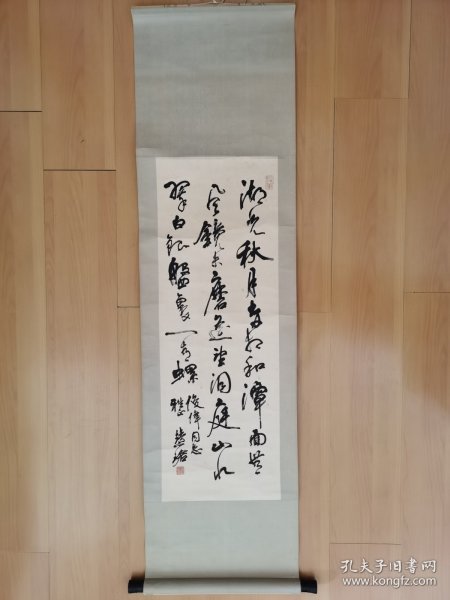 湖光秋月两相和潭面无
风镜未磨遥望洞庭山水
翠白银盘里一青螺
俊伟同志
雅正
孔夫子旧书网
www.kongfz.com